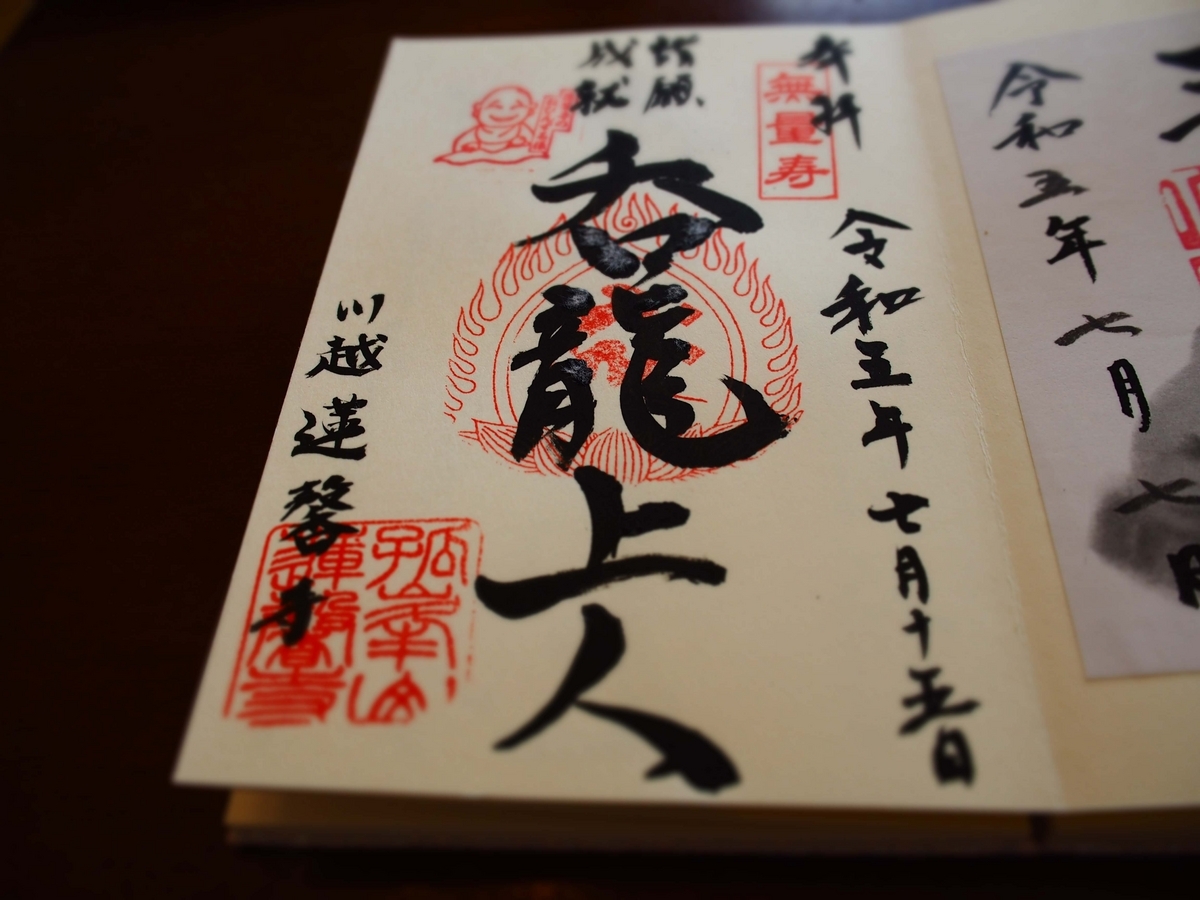 令和五年七月七日
奉拝
無量寿
令和五年七月十五日
諸願
成就
呑龍上人
川越蓮馨寺
孤峯山
蓮馨寺